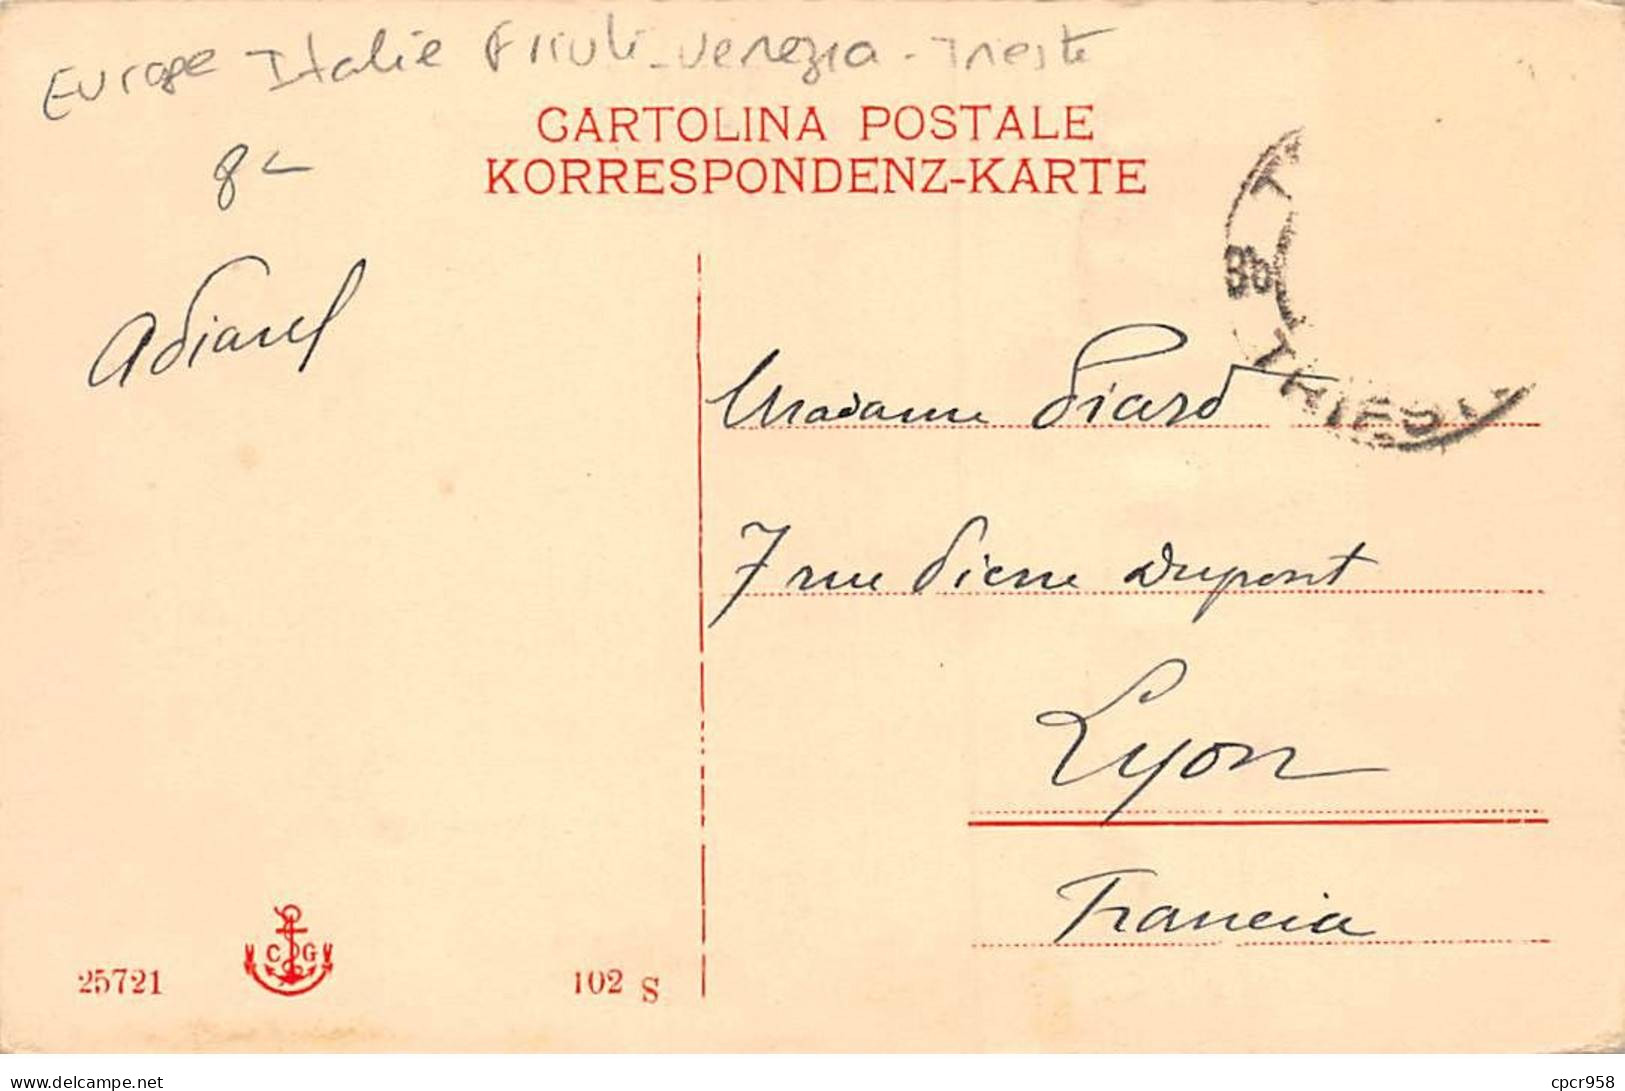 Europe Italie Friuli-venezia - Trieste
CARTOLINA POSTALE
KORRESPONDENZ-KARTE
8
Madame Piard
7 rue Pierre Dupont
Lyon
Francia
C G
25721
102 S
TRIEST
3b
delcampe.net
cpcr958